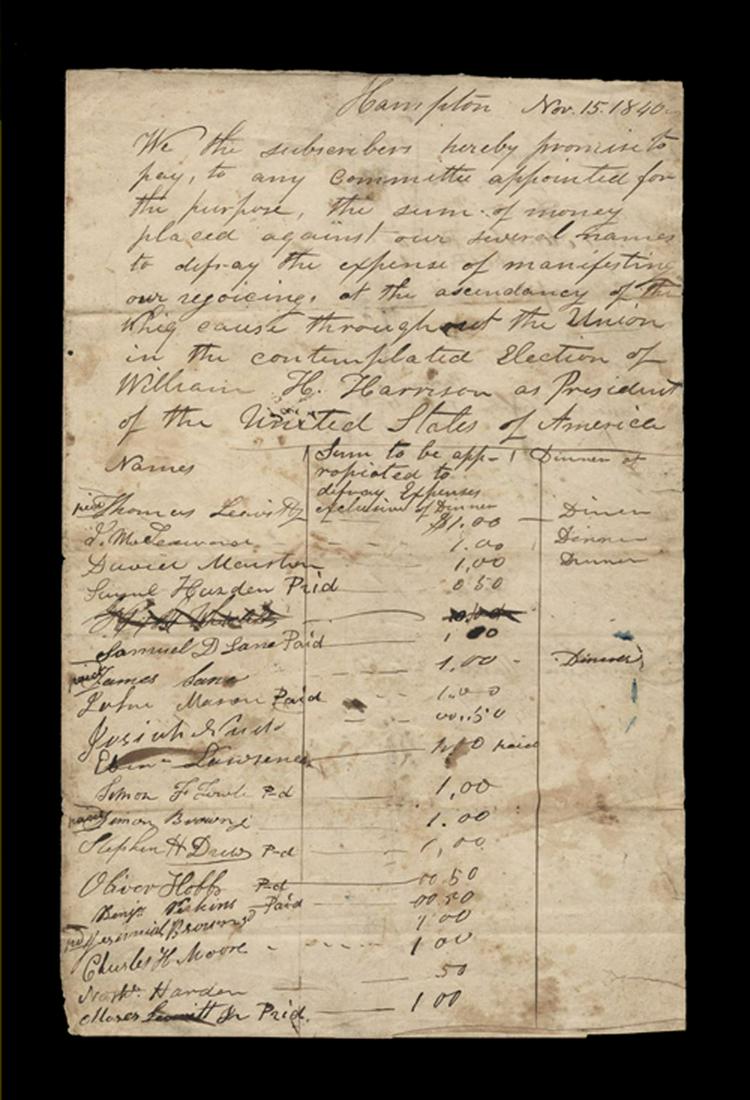 Hampton Nov. 15. 1840
We the subscribers hereby promise to
pay, to any Committee appointed for
the purpose, the sum of money
placed against our several names
to defray the expense of manifesting
our rejoicings at the ascendancy of the
Whig cause throughout the Union
in the contemplated Election of
William H. Harrison as President
of the United States of America
Names Sum to be app- Dinner at
ropiated to
defray Expenses
exclusive of Dinner
Thomas Leavitt $1.00 Diner
1.00 Dinner
David Marston 1,00 Dinner
Samuel Hazden Paid 0 50
Samuel D Lane Paid 1 00
paid James Lane 1,00 Dinner
John Mason Paid 1.00
Josiah 00.50
Lawrence 1,00 paid
Simon F Towle P-d 1,00
Simon Brown 1.00
Stephen H Drew P-d 1,00
Oliver Hobbs P-d 00 50
Benjn Perkins Paid 00 50
Jeremiah Brown 1 00
Charles H Moore 1 00
Harden 50
Moses Leavitt Jr Paid. 1 00